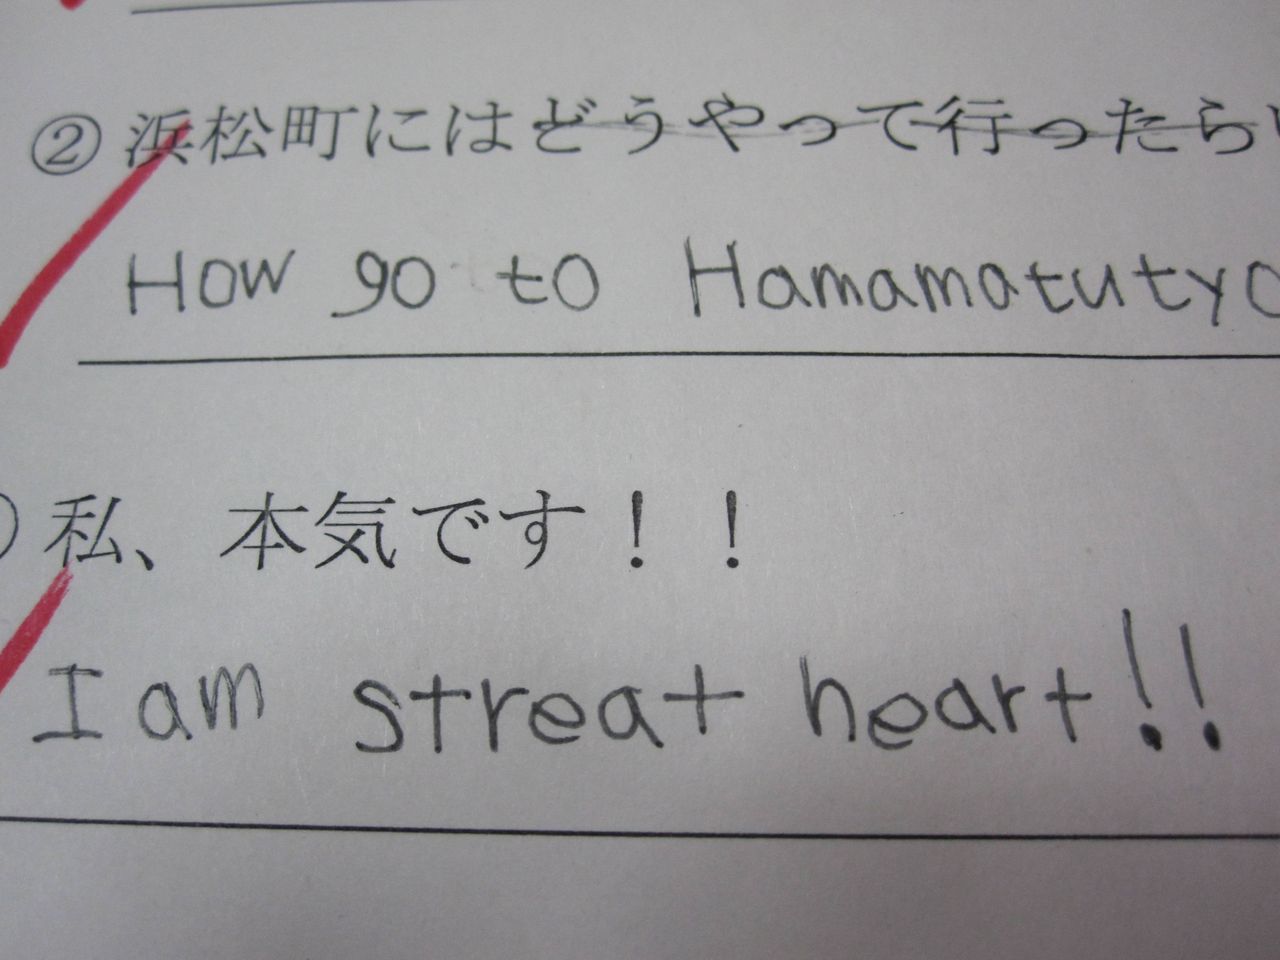 ② 浜松町にはどうやって行ったら
How go to Hamamatutyo
私、本気です！！
I am streat heart!!